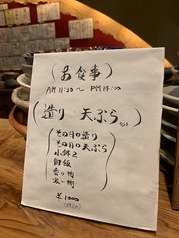 (お食事)
AM 11:30 〜 PM 14:00
(造り 天ぷら セット)
その日の造り
その日の天ぷら
小鉢2
御飯
香の物
¥1000